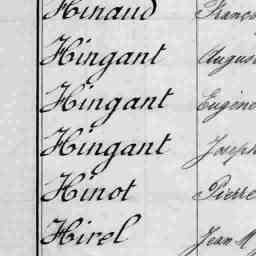 Hinaud Franço
Hingant August
Hingant Eugène
Hingant Joseph
Hinot Pierre
Hirel Jean M